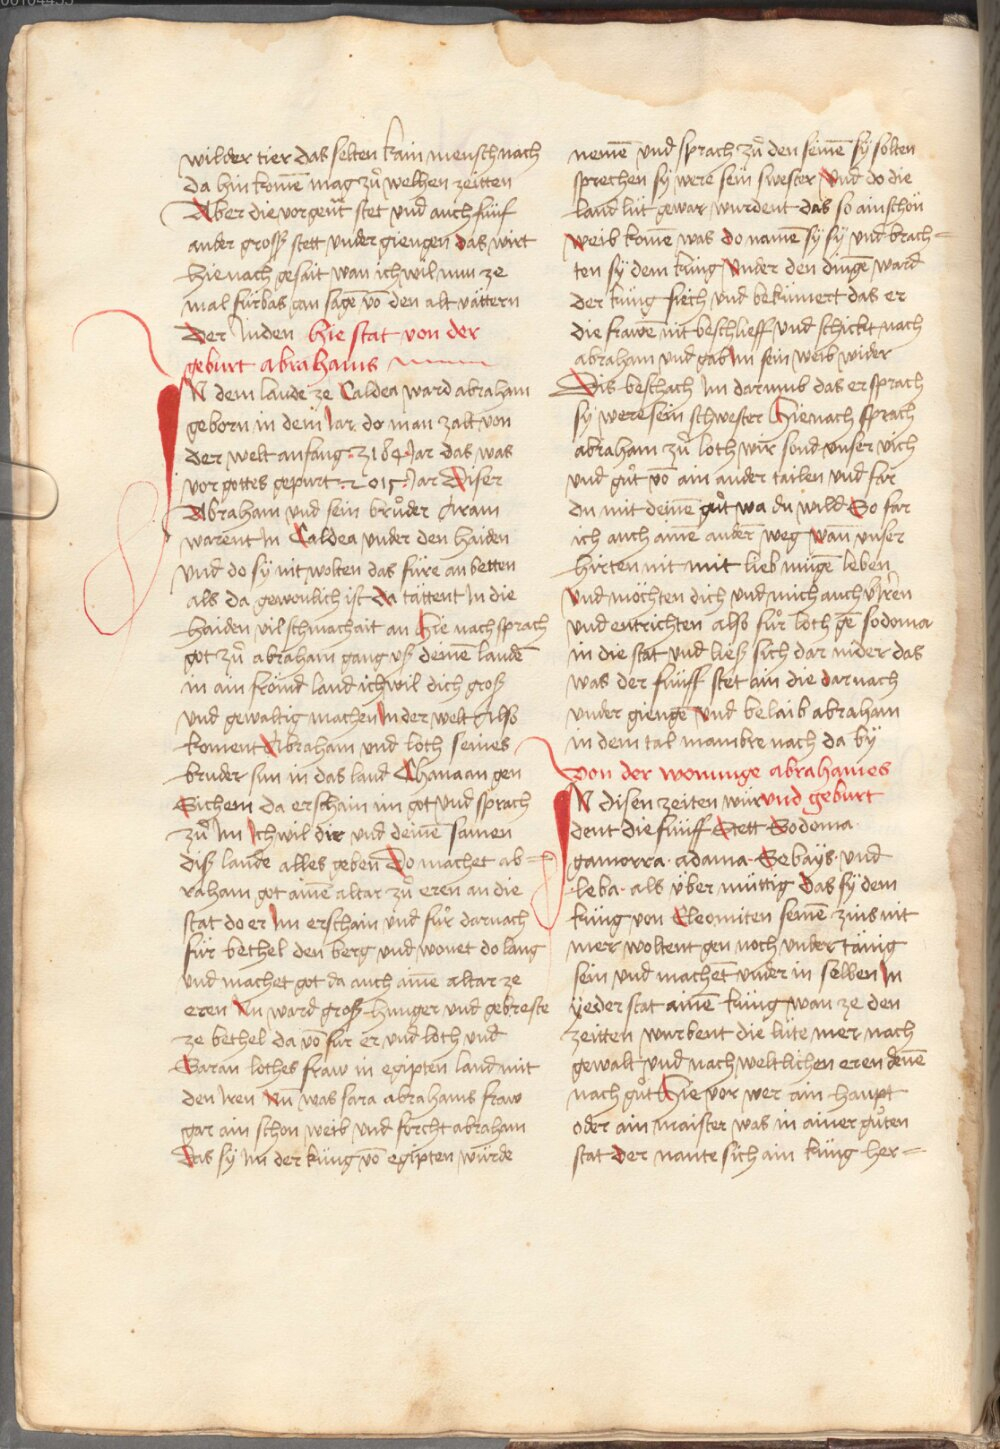 wilder tier das selten kain mensch nach
da hin komē mag zů welhen zeitten
Aber die vorgent̄ stet vnd auch fünf
ander gross stett vnder giengen das wirt
hie nach gesait wan ich wil nun ze
mal fürbas gan sagē vō den alt vättern
der Juden hie stat von der
geburt abrahams
IN dem lande ze Caldea ward abraham
geborn in dem Jar do man zalt von
der welt anfang 2184 Jar das was
vor gottes gepurt 2015 Jar Diser
Abraham vnd sein brůder Aram
warent Jn Caldea vnder den haiden
vnd do sÿ nit wolten das füre an betten
als da gewonlich ist da tättent Jn die
haiden vil schmachait an hie nach sprach
got zů abraham gang vß deinē landē
in ain frömd land ich wil dich groß
vnd gewaltig machen Jn der welt Also
koment Abraham vnd loth seines
bruder sun in das land Chanaan gen
Sichem da erschain im got vnd sprach
zů Jm Ich wil dir vnd deinē samen
diß lande alles geben Do machet ab=
raham got ainē altar zů eren an die
stat do er Jm erschain vnd fůr darnach
für bethel den berg vnd wonet do lang
vnd machet got da auch ainē altar ze
eren Nu ward groß hunger vnd gebreste
ze bethel da vō fůr er vnd loth vnd
Saran lothes fraw in egipten land mit
den Jren Nū was sara abrahams fraw
gar ain schon weib vnd forcht abraham
das sÿ Jm der küng vō egipten würde
nemē vnd sprach zů den seinē sÿ solten
sprechen sÿ were sein swester Vnd do die
land lüt gewar wurdent das so ain schön
weib komē was do namē sÿ sÿ vnd brach=
ten sÿ dem küng Vnder den dingē ward
der küng siech vnd bekümert das er
die frawē nit beschlieff vnd schickt nach
abraham vnd gab Jm sein weib wider
Dis beschach Jm darumb das er sprach
sÿ were sein schwester Hie nach sprach
abraham zů loth wir sond vnser vich
vnd gůt vō ain ander tailen vnd far
du mit deinē gůt wa du wild So far
ich auch ainē andern̄ weg wan̄ vnser
hirten nit mit lieb mügē leben
Vnd möchten dich vnd mich auch vÿrren
vnd entrichten also fůr loth gē sodoma
in die stat vnd ließ sich dar nider das
was der fünff stet ain die darnach
vnder giengē Vnd belaib abraham
in dem tal mambre nach da bÿ
Von der wonunge abrahames
IN disen zeiten wur vnd geburt
dent die fünff Stett Sodoma
gamorra · adama · Sebaÿs · vnd
leba · als über müttig das sÿ dem
küng von Cleomiten seinē zins nit
mer woltent gen noch vndertänig
sein vnd machet̄ vnder in selben Jn
ÿeder stat ainē küng wan ze den
zeitten wurbent die lüte mer nach
gewalt vnd nach weltlichen eren denē
nach gůt Hie vor wer ain haupt
oder ain maister was in ainer gůten
stat der nante sich ain küng her=